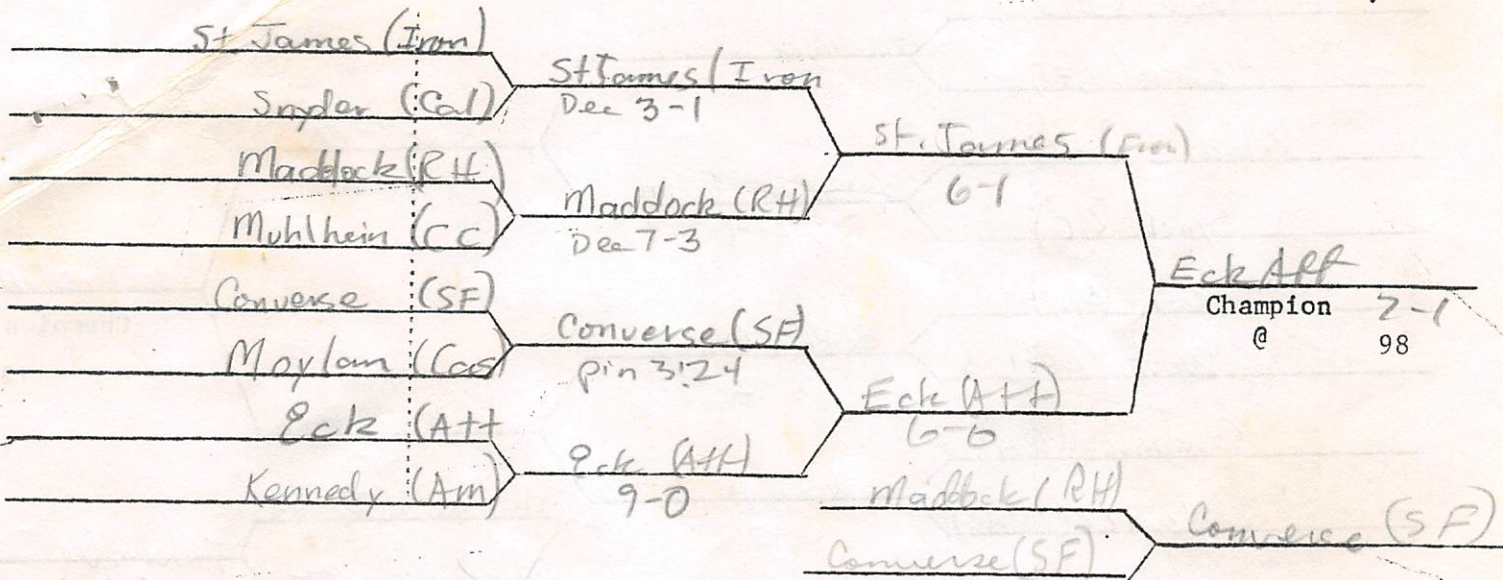 St. James (Iron)
Snyder (Cal)
Maddock (RH)
Muhlhein (CC)
Converse (SF)
Moylan (Cas)
Eck (Att
Kennedy (Am)
St James (Iron
Dec 3-1
Maddock (RH)
Dec 7-3
Converse (SF)
pin 3:24
Eck (Att)
9-0
St. James (Iron)
6-1
Eck (Att)
6-6
Eck Att
Champion 2-1
@ 98
Maddock (RH)
Converse (SF)
Converse (SF)